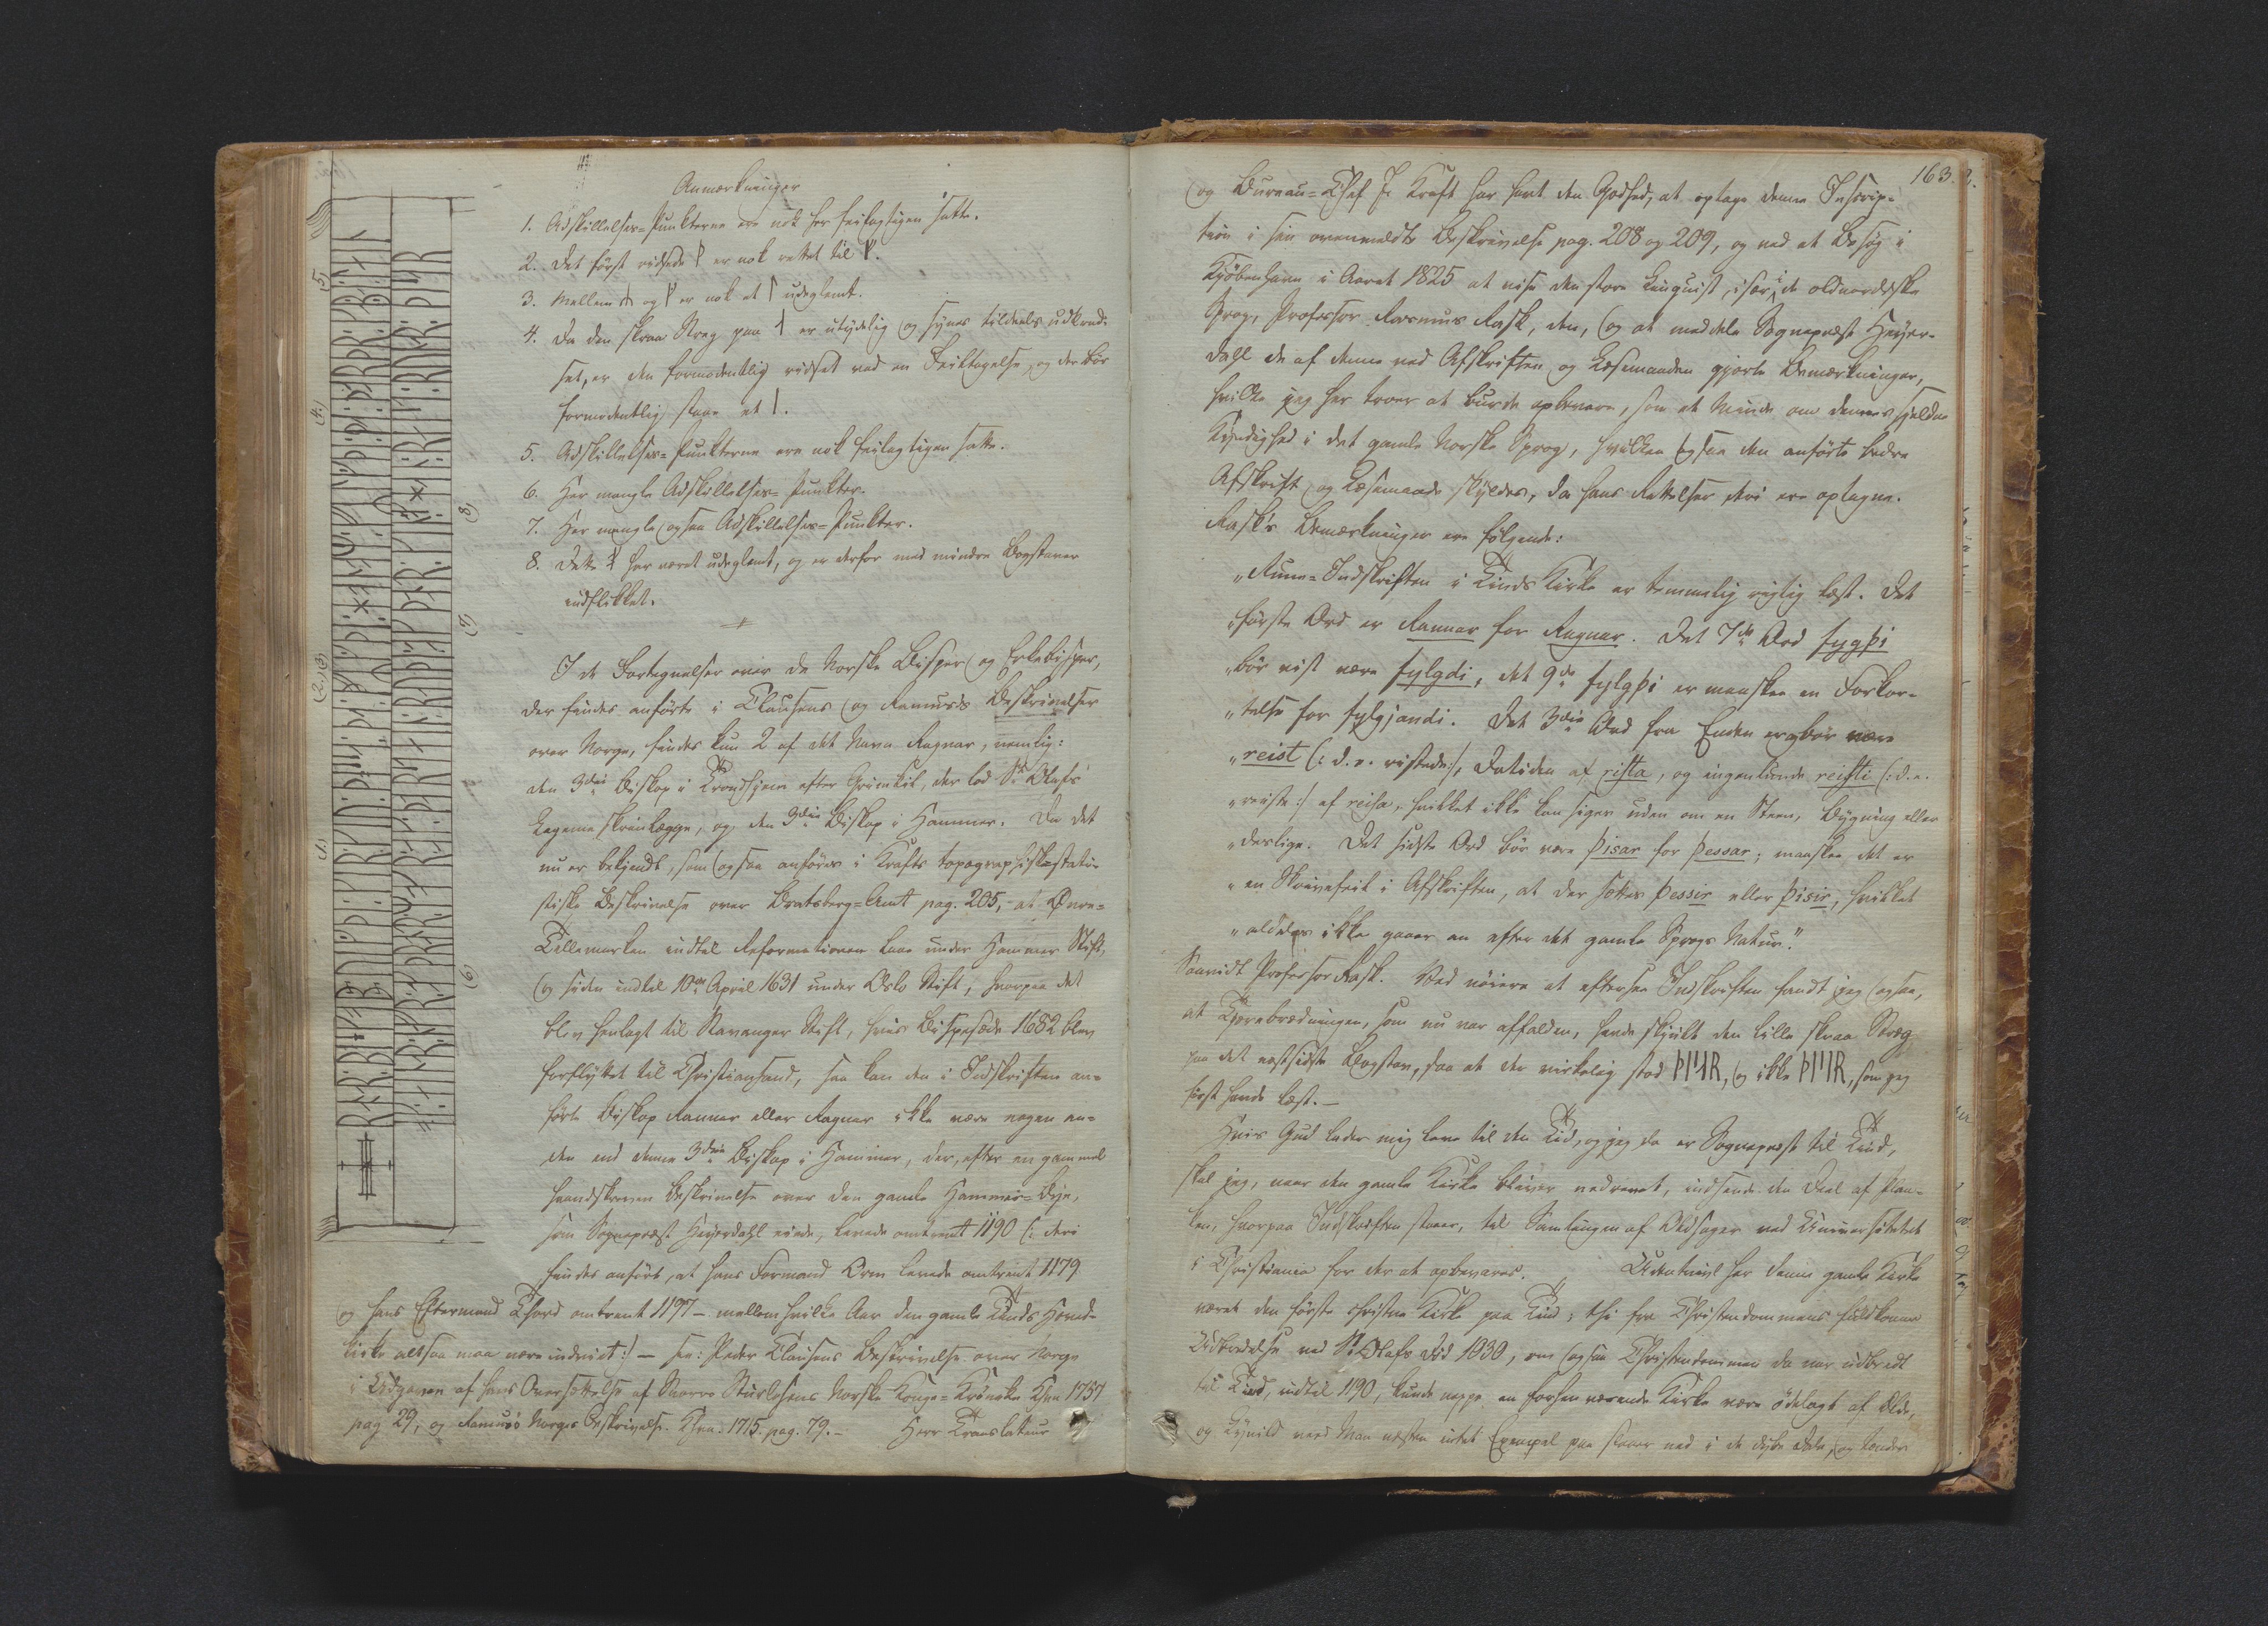 Anmærkninger
1. Adskillelses-Punkterne ere nok her feilagtigen satte.
2. Det först ridsede ᚹ er nok rettet til ᚠ.
3. Mellem og er nok et ᛚ udeglemt.
4. Da den skraa Streg paa ᛆ er utydelig og synes tildeels udkrad-
set, er den formodentlig ridset ved en Feiltagelse, og der bör
formodentlig staae et ᛁ.
5. Adskillelses-Punkterne ere nok feilagtigen satte.
6. Her mangle Adskillelses-Punkter.
7. Her mangle ogsaa Adskillelses-Punkter.
8. Dette har været udeglemt, og er derfor med mindre Bogstaver
indflikket.
I de Fortegnelser over de Norske Bisper og Erkebisper,
der findes anförte i Clausens og Ramus's Beskrivelser
over Norge, findes kun 2 af det Navn Ragnar, nemlig:
den 3die Biskop i Trondhjem efter Grimkil, der lod St Olafs
Legeme skrinlægge, og den 3die Biskop i Hammer. Da det
nu er bekjendt, som ogsaa anföres i Krafts topographisk-stati-
stiske Beskrivelse over Bratsberg-Amt pag. 205, at Övre-
Tellemarken indtil Reformationen laae under Hammer Stift,
og siden indtil 10de April 1631 under Oslo Stift, hvorpaa det
blev henlagt til Stavanger Stift, hvis Bispesæde 1682 blev
forflyttet til Christiansand, saa kan den i Indskriften an-
förte Biskop Rannar eller Ragnar ikke være nogen an-
den end denne 3die Biskop i Hammer, der, efter en gammel
haandskreven Beskrivelse over den gamle Hammer-Bye,
som Sognepræst Heyerdahl eiede, levede omtrent 1190 (: deri
findes anfört, at hans Formand Orm levede omtrent 1179
og hans Eftermand Thord omtrent 1197 – mellem hvilke Aar den gamle Kinds Hoved-
kirke altsaa maa være indviet :) — see: Peder Clausens Beskrivelse over Norge
i Udgaven af hans Oversættelse af Snorro Sturlesens Norske Konge-Krönike Khvn 1757
pag 29, og Ramus's Norges Beskrivelse. Khvn. 1715. pag. 79. – Herr Translateur
163.
og Bureau-Chef J. Kraft har havt den Godhed, at optage denne Inscrip-
tion i sin ovenmeldte Beskrivelse pag. 208 og 209, og ved et Besög i
Kjöbenhavn i Aaret 1825 at vise den store Linguist, især i de oldnordiske
Sprog, Professor Rasmus Rask, den, og at meddele Sognepræst Heyer-
dahl de af denne ved Afskriften og Læsemaaden gjorte Bemærkninger,
hvilke jeg her troer at burde opbevare, som et Minde om dennes sjeldne
Kyndighed i det gamle Norske Sprog, hvilken ogsaa den anförte bedre
Afskrift og Læsemaade skyldes, da hans Rettelser deri ere optagne.
Rask's Bemærkninger ere fölgende:
„Rune-Indskriften i Kinds Kirke er temmelig rigtig læst. Det
„förste Ord er Rannar for Ragnar. Det 7de Ord fygþi
„bör vist være fylgdi, det 9de fylgþi er maaskee en Forkor-
„telse for fylgjandi. Det 3die Ord fra Enden og bör være
„reist (: d. e. ristede :), Datiden af rista, og ingenlunde reisti (: d. e.
„reiste :) af reisa, hvilket ikke kan siges uden om en Steen, Bygning eller
„deslige. Det sidste Ord bör være þisar for þessar; maaskee det er
„en Skrivefeil i Afskriften, at der sættes þessir eller þisir, hvilket
„aldeles ikke gaaer an efter det gamle Sprogs Natur."
Saavidt Professor Rask. Ved nöiere at efterse Indskriften fandt jeg ogsaa,
at Tjærebrædningen, som nu var affalden, havde skjult den lille skraa Streg
paa det næstsidste Bogstav, saa at der virkelig stod ᚦᛁᛌᛆᚱ, og ikke ᚦᛁᛌᛁᚱ, som jeg
först havde læst. —
Hvis Gud lader mig leve til den Tid, og jeg da er Sognepræst til Kind,
skal jeg, naar den gamle Kirke bliver nedrevet, indsende den Deel af Plan-
ken, hvorpaa Indskriften staaer, til Samlingen af Oldsager ved Universitetet
i Christiania for der at opbevares. Udentvivl har denne gamle Kirke
været den förste christne Kirke paa Kind; thi fra Christendommens fuldkomne
Udbredelse ved St Olafs Död 1030, om ogsaa Christendommen da var udbredt
til Kind, indtil 1190, kunde neppe en forhen værende Kirke være ödelagt af Ælde,
og Lynild veed Man næsten intet Exempel paa slaaer ned i de dybe Dale, og tænder